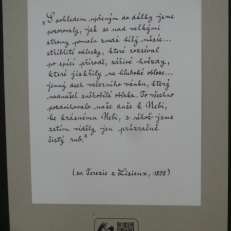 „S pohledem upřeným do dálky jsme
pozorovaly, jak se nad velkými
stromy pomalu zvedá bílý měsíc...
stříbřité odlesky, které rozséval
po spící přírodě, zářivé hvězdy,
které jiskřily na hluboké obloze...
jemný dech večerního vánku, který
nadnášel sněhobílá oblaka. To všechno
pozvedávalo naše duše k Nebi,
ke krásnému Nebi, z něhož jsme
zatím viděly jen průzračné
čistý rub."
(sv. Terezie z Lisieux, 1888)